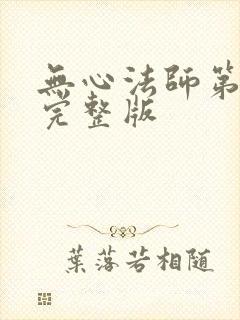 無心法師第
完整版
葉落若相隨